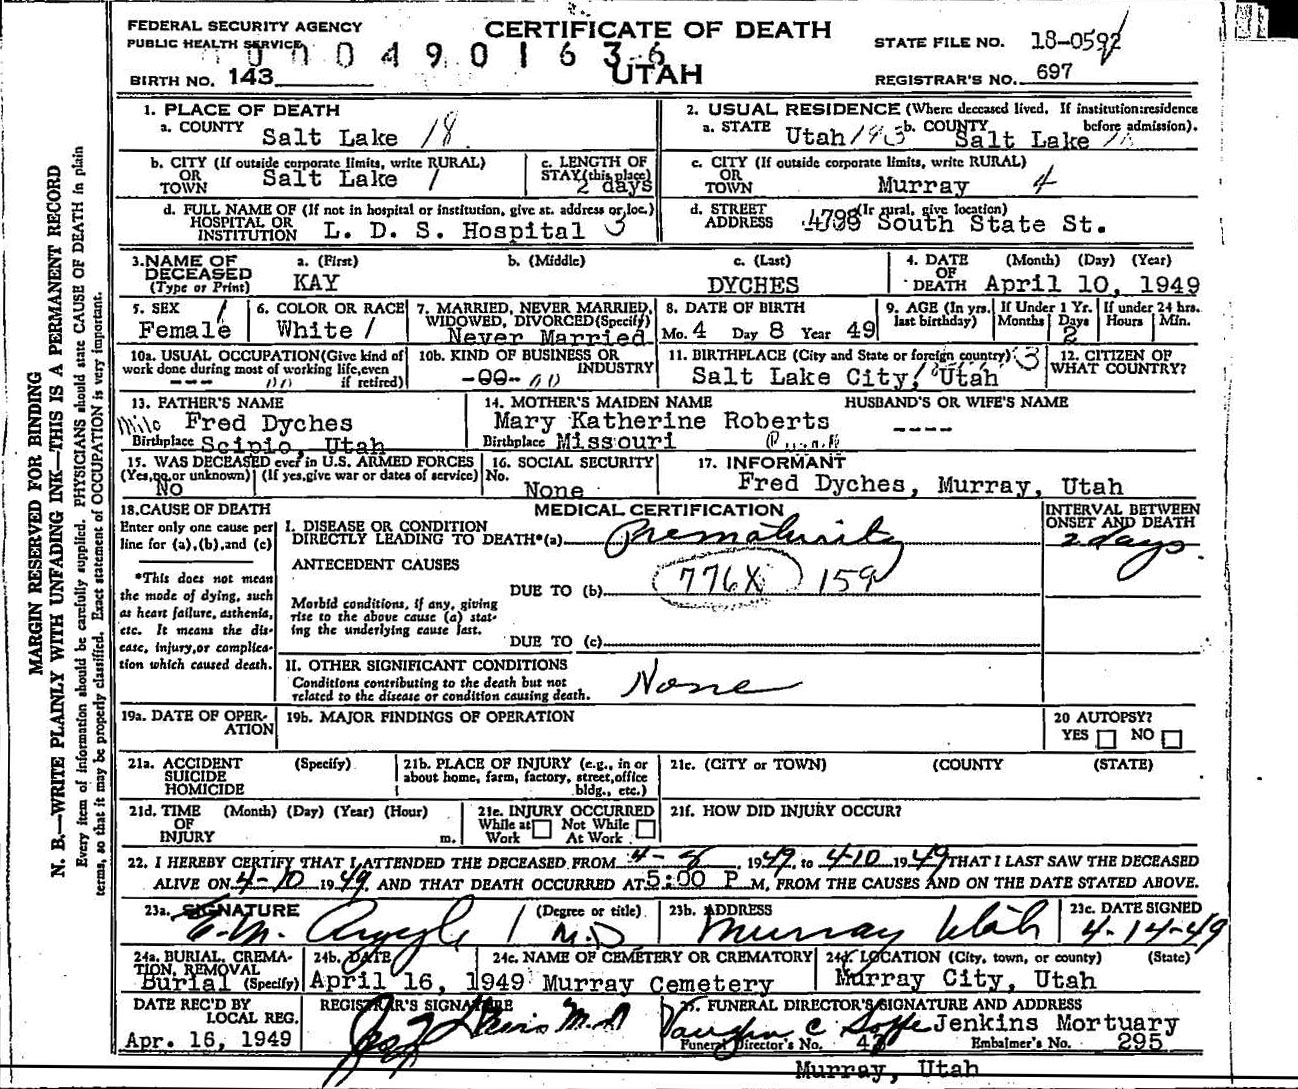 FEDERAL SECURITY AGENCY
PUBLIC HEALTH SERVICE
CERTIFICATE OF DEATH
STATE FILE NO. 18-0592
0 0 0 4 9 0 1 6 3 6
BIRTH NO. 143
UTAH
REGISTRAR'S NO. 697
1. PLACE OF DEATH
a. COUNTY Salt Lake 18
2. USUAL RESIDENCE (Where deceased lived. If institution:residence before admission).
a. STATE Utah b. COUNTY Salt Lake
b. CITY (If outside corporate limits, write RURAL)
OR TOWN Salt Lake 1
c. LENGTH OF STAY (this place) 2 days
c. CITY (If outside corporate limits, write RURAL)
OR TOWN Murray 4
d. FULL NAME OF (If not in hospital or institution, give st. address or loc.)
HOSPITAL OR INSTITUTION L. D. S. Hospital 3
d. STREET ADDRESS (If rural, give location)
4798 South State St.
3. NAME OF DECEASED (Type or Print)
a. (First) KAY
b. (Middle)
c. (Last) DYCHES
4. DATE OF DEATH (Month) (Day) (Year)
April 10, 1949
5. SEX 1
Female
6. COLOR OR RACE
White 1
7. MARRIED, NEVER MARRIED, WIDOWED, DIVORCED (Specify)
Never Married
8. DATE OF BIRTH
Mo. 4 Day 8 Year 49
9. AGE (In yrs. last birthday)
If Under 1 Yr. Months Days 2
If under 24 hrs. Hours Min.
10a. USUAL OCCUPATION (Give kind of work done during most of working life, even if retired)
---
10b. KIND OF BUSINESS OR INDUSTRY
-00-
11. BIRTHPLACE (City and State or foreign country)
Salt Lake City, Utah
12. CITIZEN OF WHAT COUNTRY?
13. FATHER'S NAME
Milo Fred Dyches
Birthplace Scipio, Utah
14. MOTHER'S MAIDEN NAME
Mary Katherine Roberts
Birthplace Missouri
HUSBAND'S OR WIFE'S NAME
----
15. WAS DECEASED ever in U.S. ARMED FORCES
(Yes, no, or unknown) (If yes, give war or dates of service)
No
16. SOCIAL SECURITY No.
None
17. INFORMANT
Fred Dyches, Murray, Utah
18. CAUSE OF DEATH
Enter only one cause per line for (a), (b), and (c)
*This does not mean the mode of dying, such as heart failure, asthenia, etc. It means the disease, injury, or complication which caused death.
MEDICAL CERTIFICATION
INTERVAL BETWEEN ONSET AND DEATH
I. DISEASE OR CONDITION DIRECTLY LEADING TO DEATH*(a) Prematurity
2 days
ANTECEDENT CAUSES
776X 159
DUE TO (b)
Morbid conditions, if any, giving rise to the above cause (a) stating the underlying cause last.
DUE TO (c)
II. OTHER SIGNIFICANT CONDITIONS
Conditions contributing to the death but not related to the disease or condition causing death.
None
19a. DATE OF OPERATION
19b. MAJOR FINDINGS OF OPERATION
20 AUTOPSY?
YES NO
21a. ACCIDENT SUICIDE HOMICIDE (Specify)
21b. PLACE OF INJURY (e.g., in or about home, farm, factory, street, office bldg., etc.)
21c. (CITY or TOWN) (COUNTY) (STATE)
21d. TIME OF INJURY (Month) (Day) (Year) (Hour) m.
21e. INJURY OCCURRED
While at Work Not While At Work
21f. HOW DID INJURY OCCUR?
22. I HEREBY CERTIFY THAT I ATTENDED THE DECEASED FROM 4-8, 1949, to 4-10 1949 THAT I LAST SAW THE DECEASED
ALIVE ON 4-10 1949, AND THAT DEATH OCCURRED AT 5:00 P M, FROM THE CAUSES AND ON THE DATE STATED ABOVE.
23a. SIGNATURE (Degree or title)
E. M. Argyle M.D
23b. ADDRESS
Murray Utah
23c. DATE SIGNED
4-14-49
24a. BURIAL, CREMATION, REMOVAL (Specify)
Burial
24b. DATE
April 16, 1949
24c. NAME OF CEMETERY OR CREMATORY
Murray Cemetery
24d. LOCATION (City, town, or county) (State)
Murray City, Utah
DATE REC'D BY LOCAL REG.
Apr. 16, 1949
REGISTRAR'S SIGNATURE
M.D
25. FUNERAL DIRECTOR'S SIGNATURE AND ADDRESS
Vaughn C Jenkins Mortuary
Funeral Director's No. Embalmer's No. 295
Murray, Utah
MARGIN RESERVED FOR BINDING
N. B.—WRITE PLAINLY WITH UNFADING INK—THIS IS A PERMANENT RECORD
Every item of information should be carefully supplied. PHYSICIANS should state CAUSE OF DEATH in plain
terms, so that it may be properly classified. Exact statement of OCCUPATION is very important.